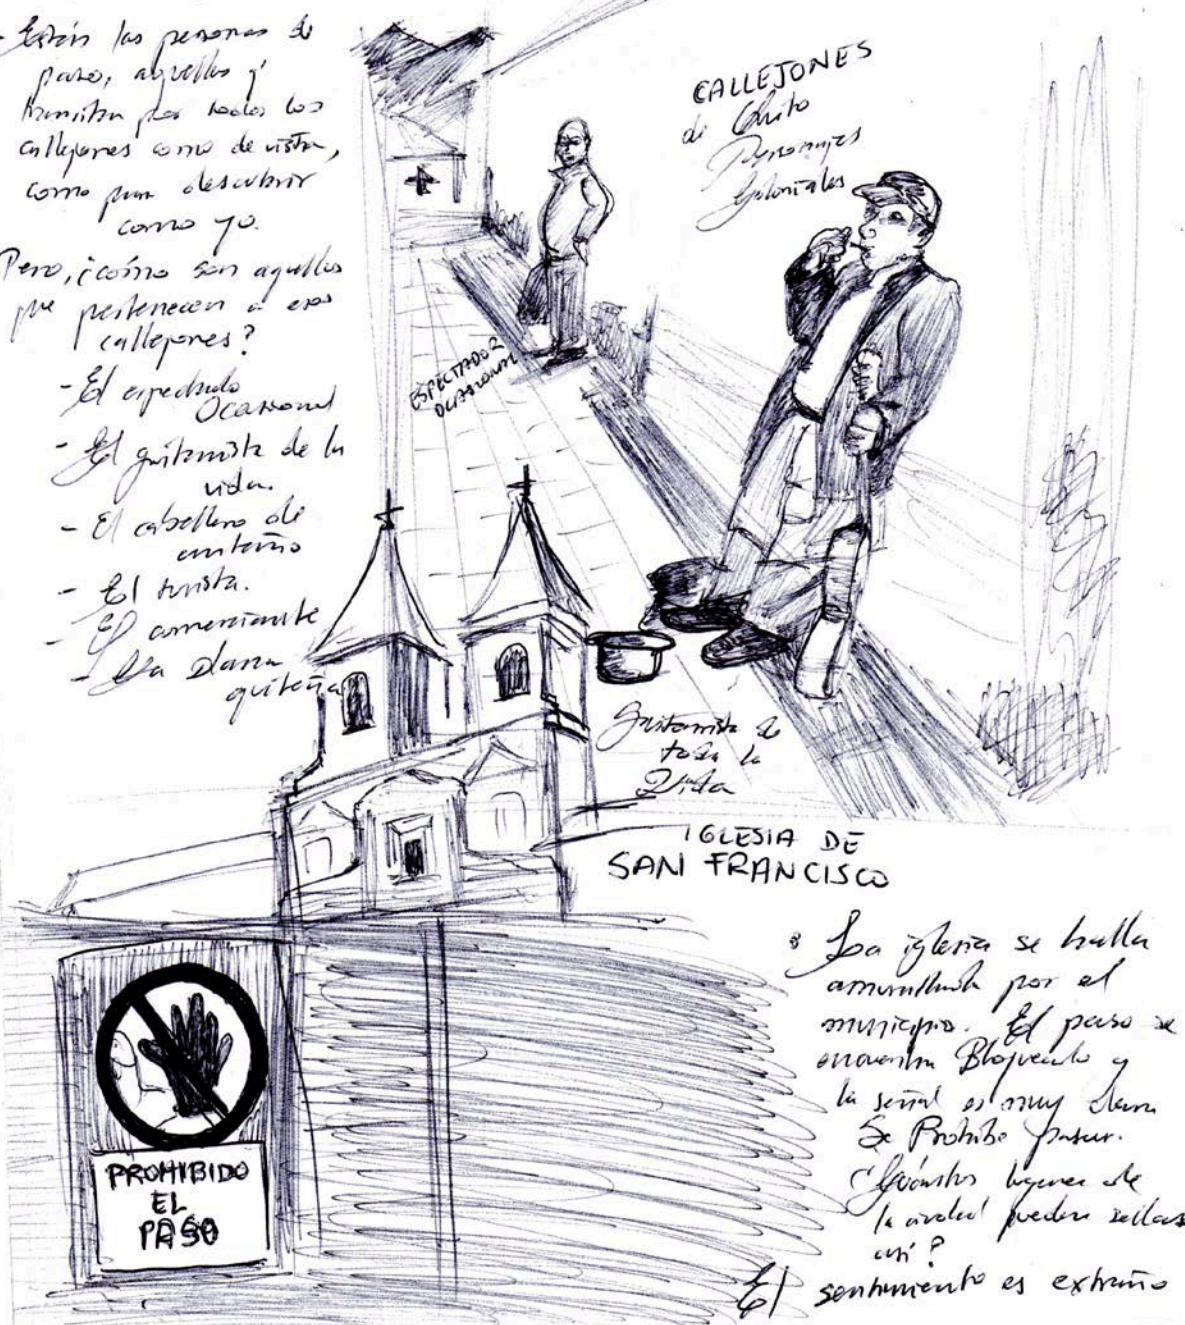 - Están las personas de
paso, aquellos q'
transitan por todos los
callejones como de visita,
como para descubrir
como yo.
Pero, ¿cómo son aquellos
que pertenecen a esos
callejones?
- El
Ocasional
- El guitarrista de la
vida.
- El caballero de
antaño
- El turista.
- El comerciante
- La Dama
quiteña
CALLEJONES
de Quito
Personajes
Coloniales
ESPECTADOR
OCASIONAL
Guitarrista de
toda la
Vida
IGLESIA DE
SAN FRANCISCO
La iglesia se halla
amurallada por el
municipio. El paso se
encuentra Bloqueado y
la señal es muy clara
Se Prohibe pasar.
¿Cuántos lugares de
la ciudad pueden
así?
El sentimiento es extraño
PROHIBIDO
EL
PASO